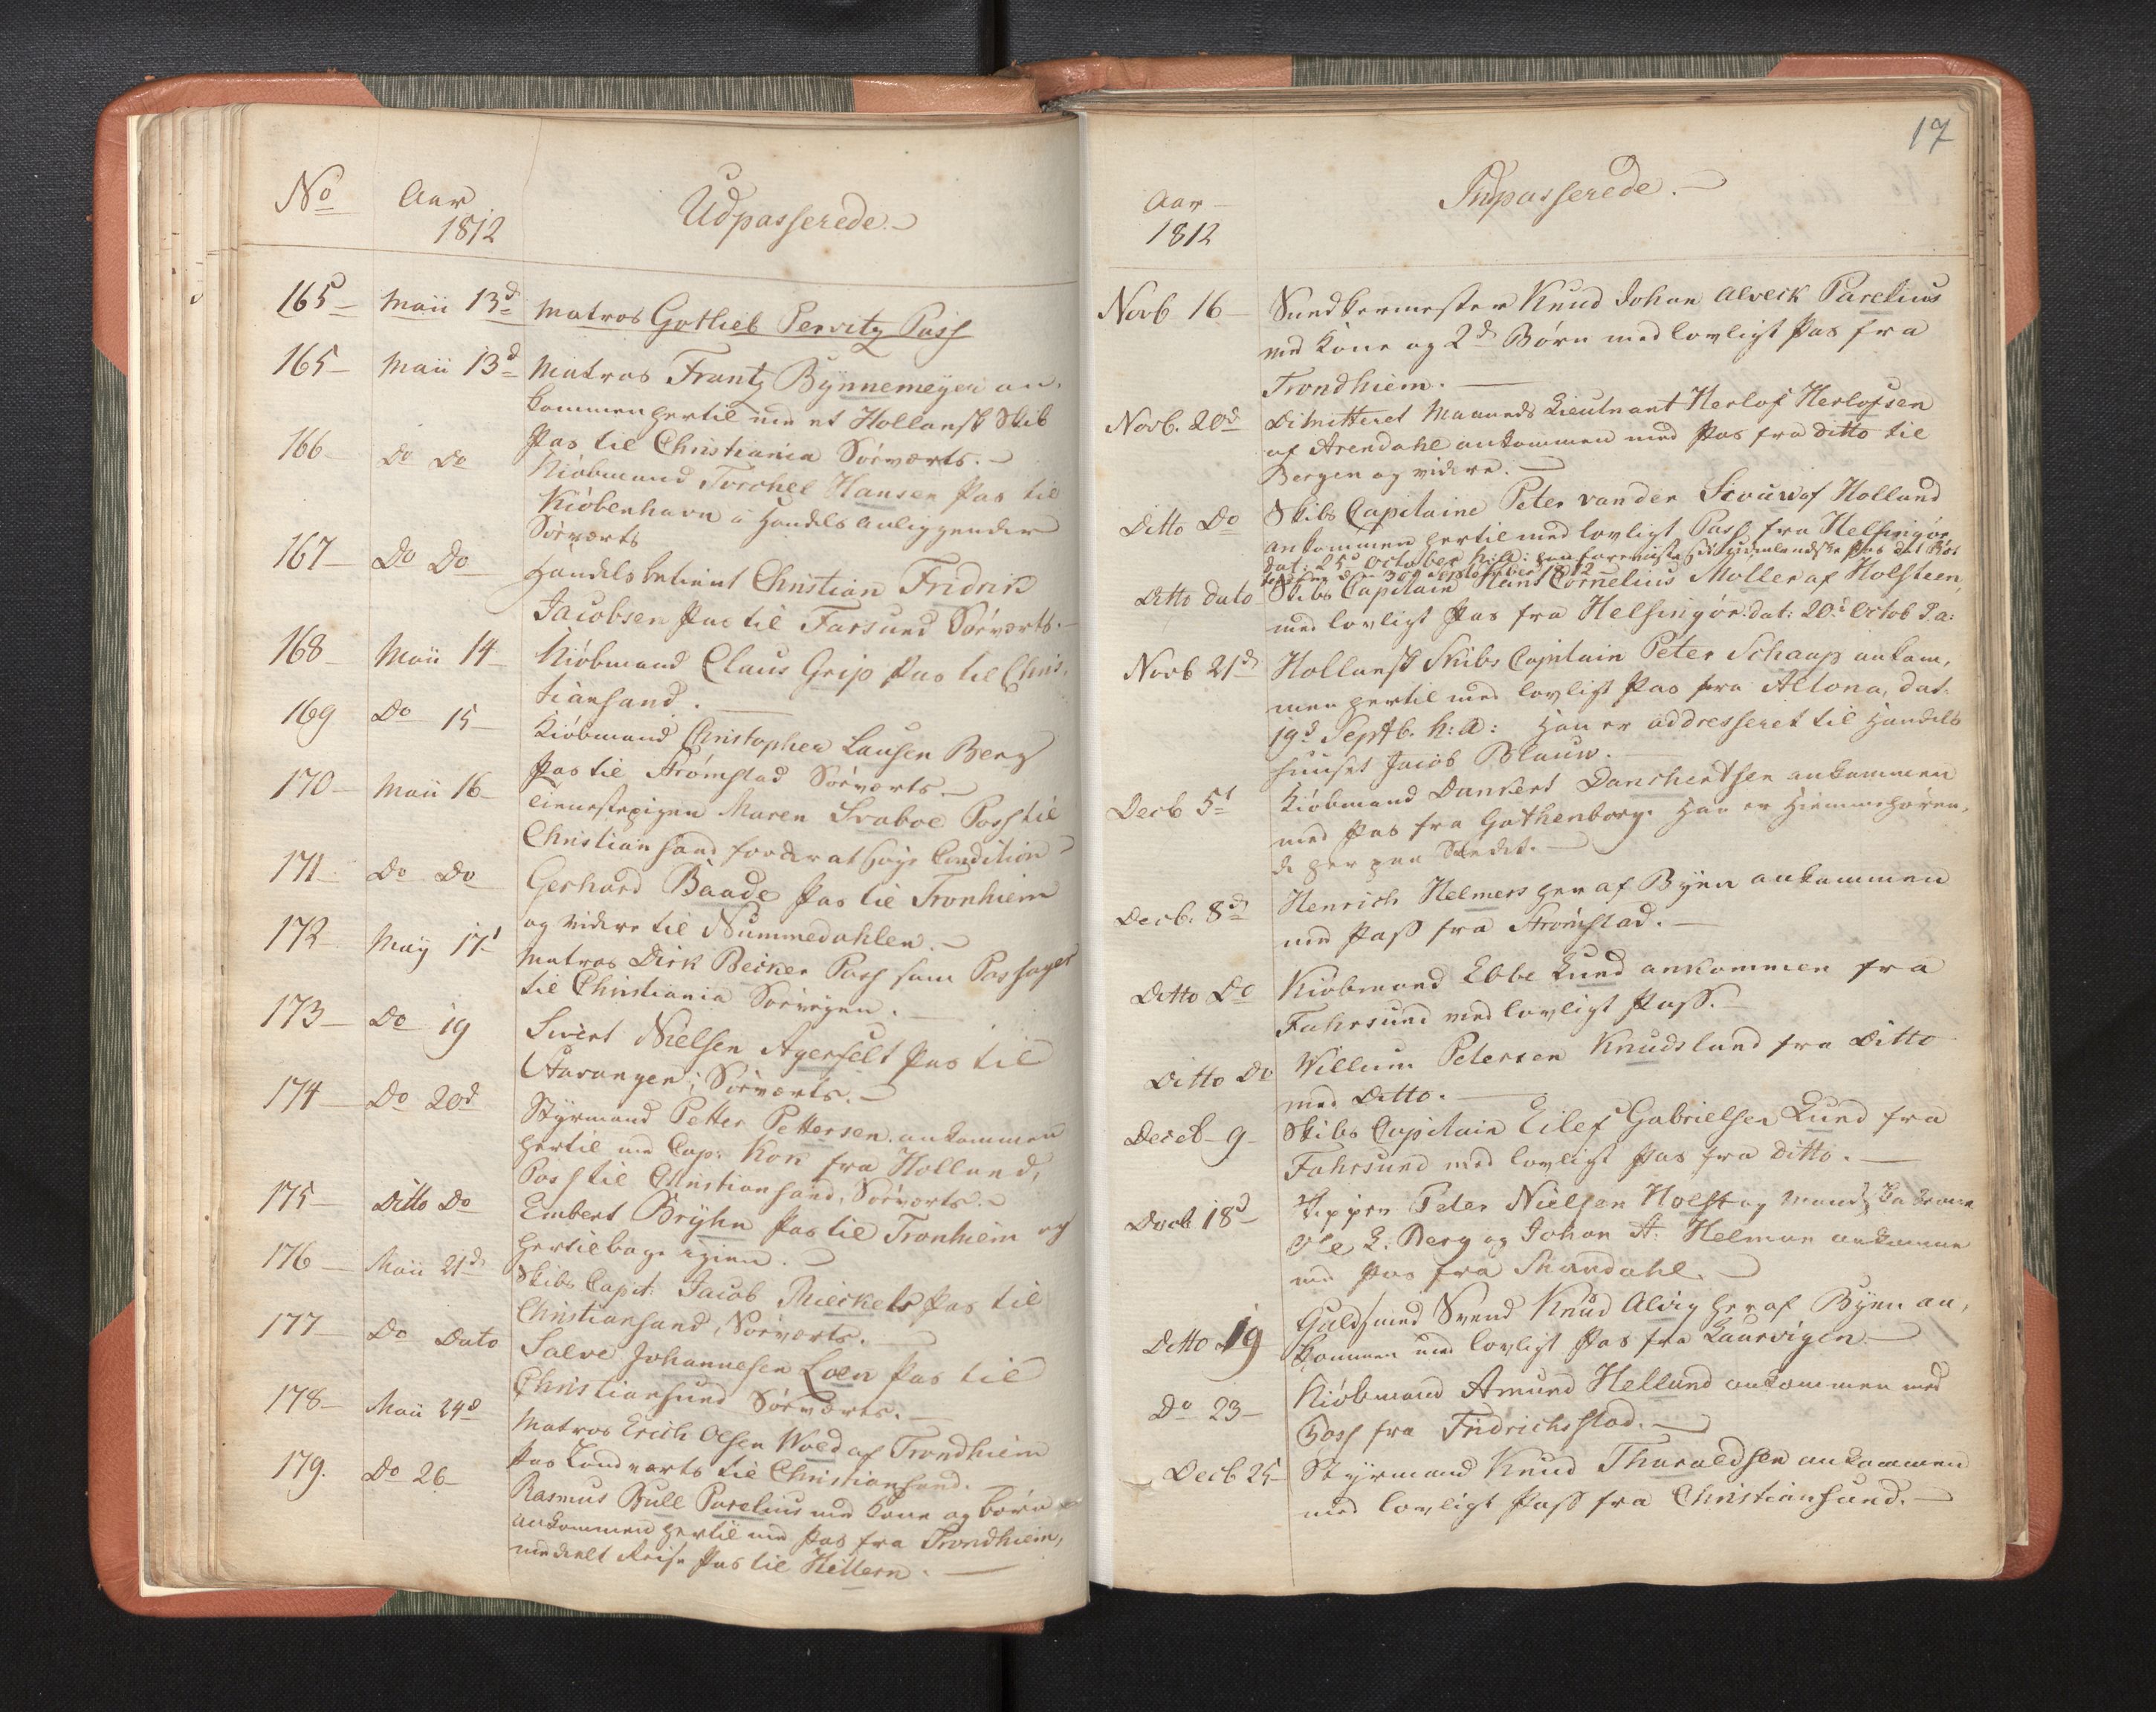 No Aar 1812 Udpasserede.
165 Maii 13d Matros Gottlieb Pervitz Pass
165 Maii 13d Matros Frantz Bynnemeyer an,
kommen hertil med et Hollansk Skib
Pas til Christiania Söeværts.
166 Do Do Kiöbmand Torchel Hansen Pas til
Kiöbenhavn i Handels Anliggender
Söeværts
167 Do Do Handelsbetient Christian Fridrik
Jacobsen Pas til Farsund Söeværts.
168 Maii 14 Kiöbmand Claus Grip Pas til Chris,
tiansand.
169 Do 15 Kiöbmand Christopher Lausen Berg
Pas til Strömstad Söeværts.
170 Maii 16 Tienestepigen Maren Svaboe Pass til
Christiansand for der at søge Condition
171 Do Do Gerhard Baade Pas til Tronhiem
og videre til Nummedahlen.
172 May 17 Matros Dirk Becker Pass som Passager
til Christiania Söevejen.
173 Do 19 Sivert Nielsen Agerfelt Pas til
Stavanger, Söeværts.
174 Do 20d Styrmand Petter Pettersen ankommen
hertil med Cap: Kok fra Holland,
Pass til Christiansand, Söeværts.
175 Ditto Do Embert Bryhn Pas til Tronhiem og
hertilbage igien.
176 Maii 21d Skibs Capit: Jacob Mieckels Pas til
Christiansand, Söeværts.
177 Do Dato Salve Johannesen Loen Pas til
Christiansund Söeværts.
178 Maii 24d Matros Erich Olsen Wold af Trondhiem
Pas Landværts til Christiansand.
179. Do 26 Rasmus Bull Parelius med Kone og børn
ankommen hertil med Pas fra Trondhiem,
meddelt Reise Pas til Hittern.
17
Aar 1812 Indpasserede.
Novb 16 Knud Johan Alveck Parelius
med Kone og 2d Børn med lovligt Pas fra
Trondhiem.
Novb. 20d Dimitteret Maaneds Lieutnant Herlof Herlofsen
af Arendahl ankommen med Pas fra ditto til
Bergen og videre.
Ditto Do Skibs Capitaine Peter van der Scouw af Holland
ankommen hertil med lovligt Pass fra Helsingör
dat: 25d October h: a: han foreviiste sit udenlandske Pas
30d September 1812
Ditto dato Skibs Capitain Hans Cornelius Moller af Holsteen,
med lovligt Pas fra Helsingör. dat: 20d Octob d. a:
Novb 21d Hollansk Skibs Capitain Peter Schaap ankom,
men hertil med lovligt Pas fra Altona, dat.
19d Septb. h: a: Han er addresseret til Handels
huuset Jacob Blauw.
Decb 5t Kiöbmand Dankert Danchertsen ankommen
med Pas fra Gothenborg. Han er hiemmehören,
de her paa Stedet.
Decb. 8d Henrich Helmers her af Byen ankommen
med Pass fra Strömstad.
Ditto Do Kiöbmand Ebbe Lund ankommen fra
Fahrsund med lovligt Pass.
Ditto Do Willum Petersen Knudslund fra Ditto
med Ditto.
Decb 9 Skibs Capitain Eilef Gabrielsen Lund fra
Fahrsund med lovligt Pas fra ditto.
Decb 18d Skipper Peter Nielsen Holst og
Ole L. Berg og Johan A: Helman ankomne
med Pas fra Mandahl.
Ditto 19 Guldsmed Svend Knud Alvig her af Byen an,
kommen med lovligt Pas fra Laurvigen.
Do 23 Kiöbmand Amund Helland ankommen med
Pass fra Fridrichsstad.
Decb 25 Styrmand Knud Tharaldsen ankommen
med lovligt Pass fra Christiansund.